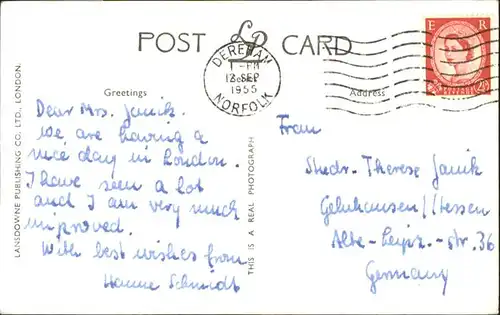 POST LP CARD
DEREHAM
1 - PM
12 SEP
1955
NORFOLK
E R
2½D
Greetings
Address
Dear Mrs. Janik.
We are having a
nice day in London.
I have seen a lot
and I am very much
improved.
With best wishes from
Hanne Schmidt
Frau
Studr. Therese Janik
Gelnhausen//Hessen
Alte-Leipz.-str. 36
Germany
LANSDOWNE PUBLISHING CO. LTD., LONDON.
THIS IS A REAL PHOTOGRAPH